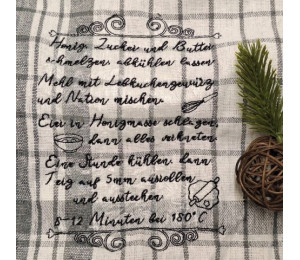 Honig Zucker und Butter
schmelzen, abkühlen lassen
Mehl mit Lebkuchengewürz
und Natron mischen
Eier in Honigmasse schlagen,
dann alles verkneten.
Eine Stunde kühlen, dann
Teig auf 5mm ausrollen
und ausstechen
8-12 Minuten bei 180°C